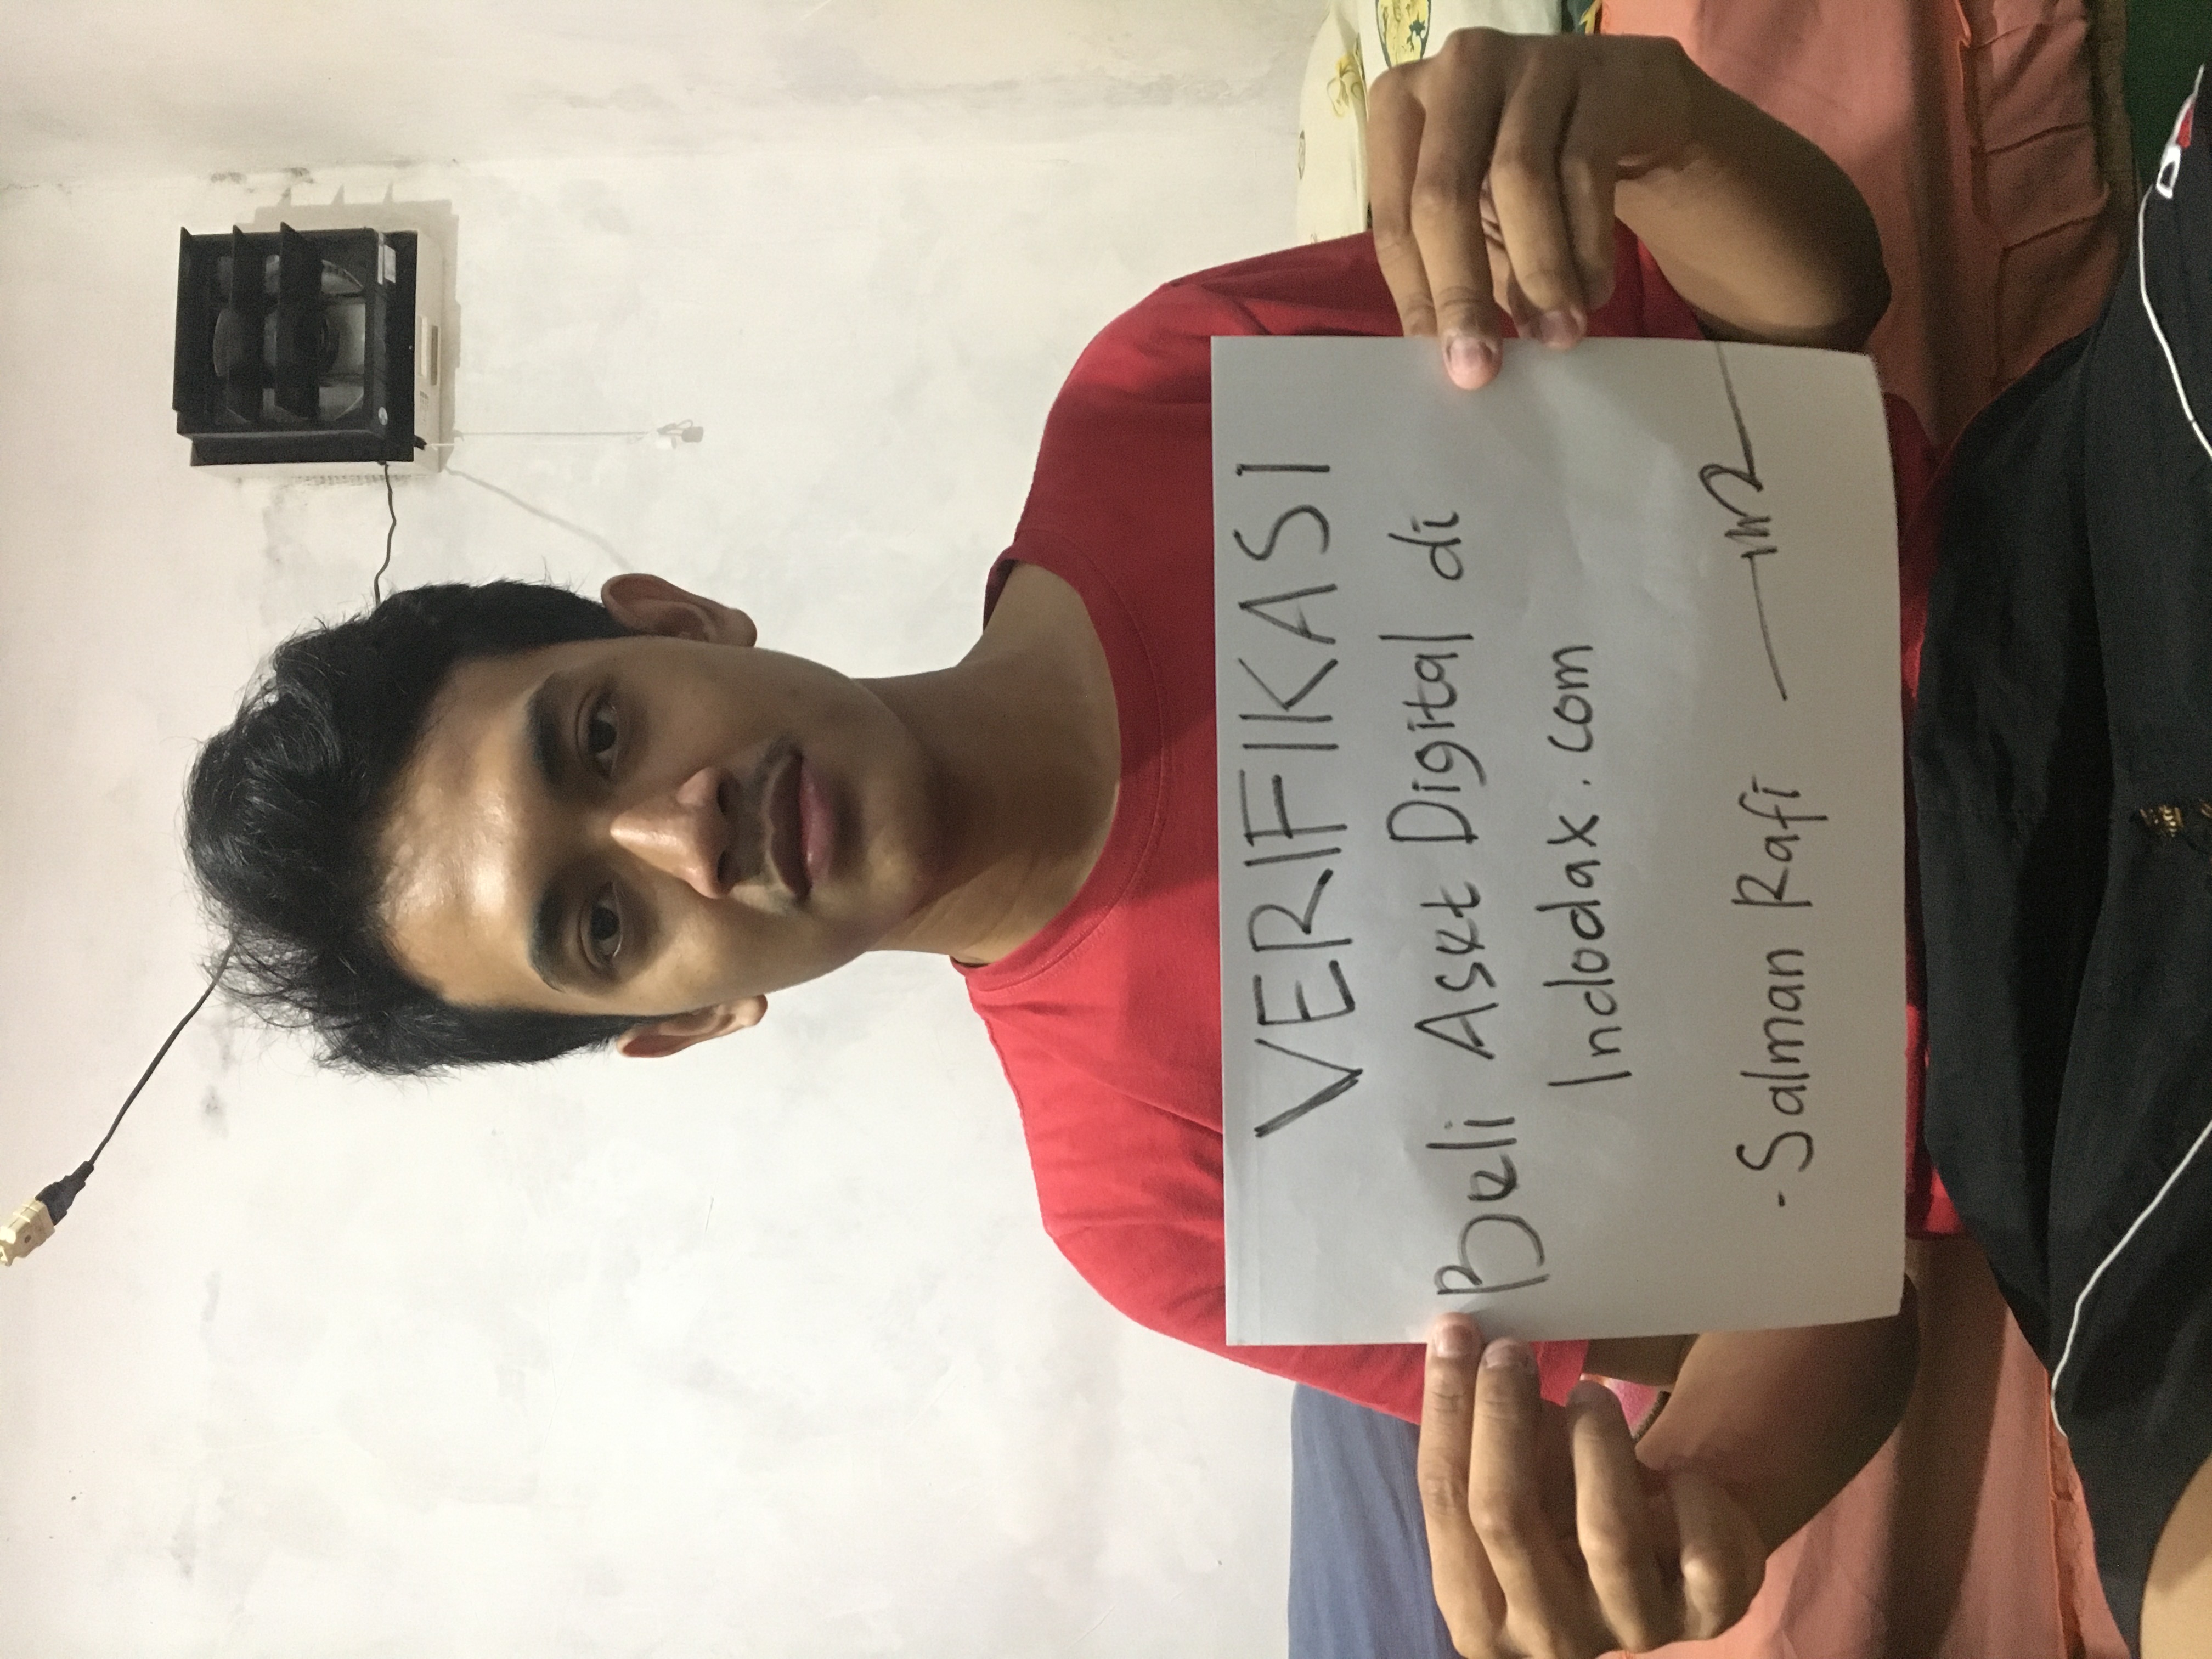 VERIFIKASI
Beli Aset Digital di
Indodax.com
-Salman Rafi